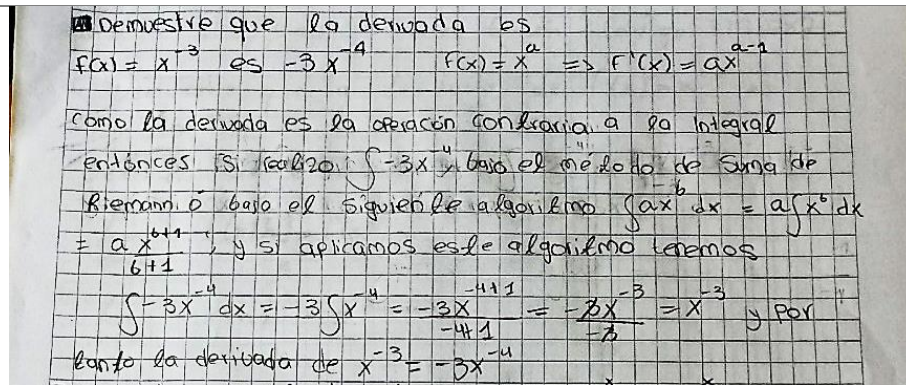 Demuestre que la derivada es
f(x) = x^-3 es -3x^-4 f(x) = x^a => F'(x) = ax^a-1
como la derivada es la operación contraria a la integral
entónces si realizo ∫-3x^-4 y bajo el método de suma de
Riemann ó bajo el siguiente algoritmo ∫ax^b dx = a∫x^b dx
= a x^b+1 / b+1 ; y si aplicamos este algoritmo tenemos
∫-3x^-4 dx = -3∫x^-4 = -3x^-4+1 / -4+1 = -3x^-3 / -3 = x^-3 y por
tanto la derivada de x^-3 = -3x^-4